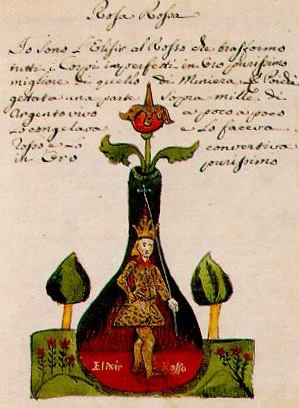 Rosa Rossa
Io sono L'Elisir al Rosso che trasformo
tutti i Corpi imperfetti in Oro purissimo
migliore di quello di Miniera, e
gettata una parte Sopra mille di
Argento vivo a poco a poco
congelava e Lo faceva
Rosso e convertiva
in Oro purissimo
Elixir Rosso